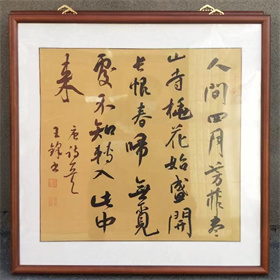 人間四月芳菲尽
山寺桃花始盛開
長恨春歸無覓
處不知轉入此中
来
唐诗
王